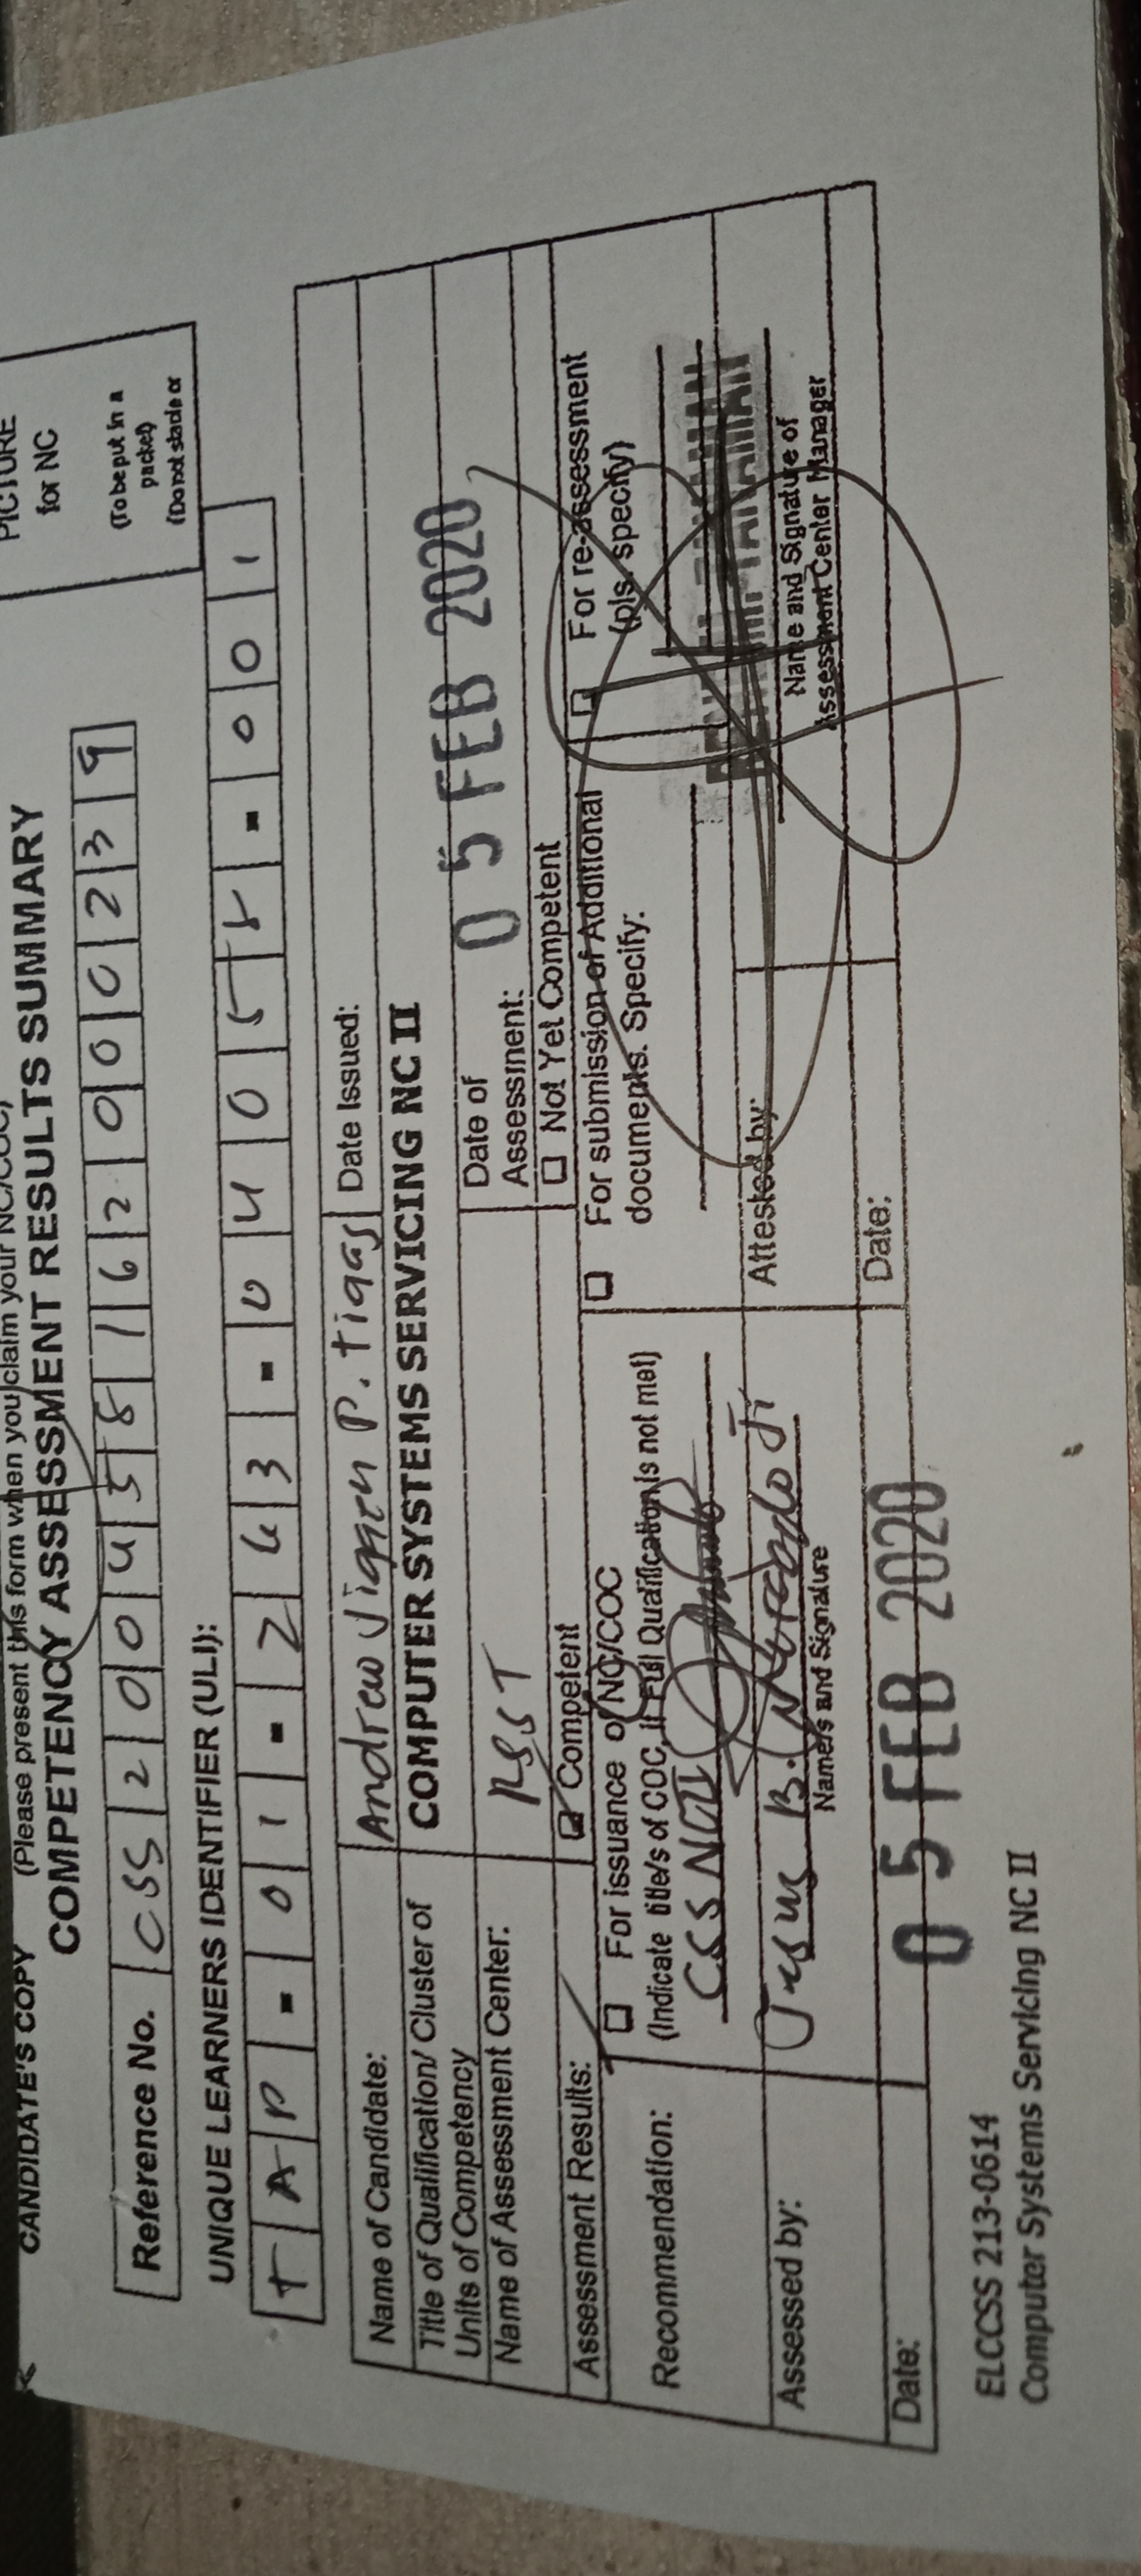 CANDIDATE'S COPY (Please present this form when you claim your NC/COC)
COMPETENCY ASSESSMENT RESULTS SUMMARY
PICTURE
for NC
(To be put in a
packet)
(Do not staple or
Reference No. CSS 2 0 0 4 5 8 1 6 2 0 0 0 2 3 9
UNIQUE LEARNERS IDENTIFIER (ULI):
T A P - 0 1 - 2 6 3 - 0 4 0 5 8 - 0 0 1
Name of Candidate: Andrew P. Tigas Date Issued:
Title of Qualification/ Cluster of
Units of Competency
COMPUTER SYSTEMS SERVICING NC II
Name of Assessment Center: RSST
Date of
Assessment: 05 FEB 2020
Assessment Results: Competent
Not Yet Competent
Recommendation:
For issuance of NC/COC
(Indicate title/s of COC, if Full Qualification is not met)
CSS NCII
For submission of Additional
documents. Specify:
For re-assessment
(pls. specify)
Assessed by: Jesus B. Mercado Jr
Name/s and Signature
Attested by: TANAMAN
Name and Signature of
Assessment Center Manager
Date: 05 FEB 2020
Date:
ELCCSS 213-0614
Computer Systems Servicing NC II